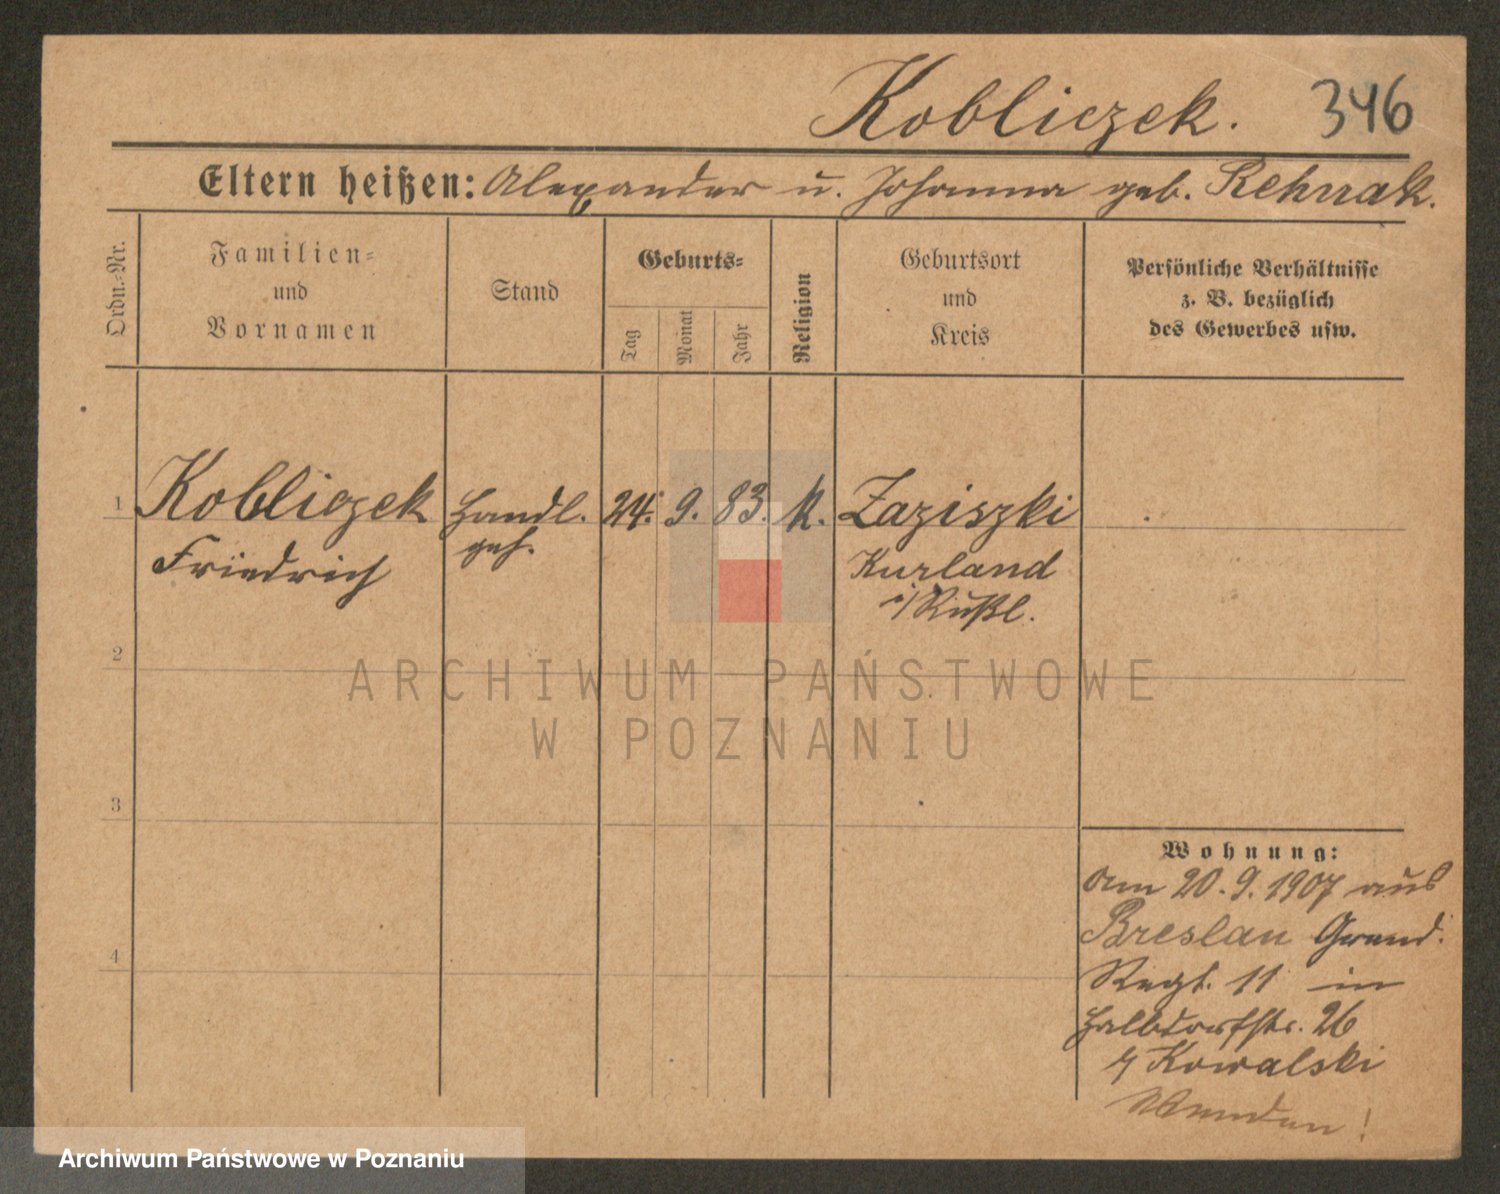 Kobliczek. 346
Eltern heißen: Alexander u. Johanna geb. Rehnak.
Ordn.-Nr.
Familien-
und
Vornamen
Stand
Geburts-
Tag
Monat
Jahr
Religion
Geburtsort
und
Kreis
Persönliche Verhältnisse
z. B. bezüglich
des Gewerbes usw.
1 Kobliczek Handl. 24. 9. 83. K. Zaziszki
Friedrich geh. Kurland
i/Rußl.
2
ARCHIWUM PAŃSTWOWE
W POZNANIU
3
Wohnung:
am 20.9.1907 aus
Breslau Grend.
4
Regt. 11 in
Halbdorfstr. 26
Kowalski
Wenden!
Archiwum Państwowe w Poznaniu